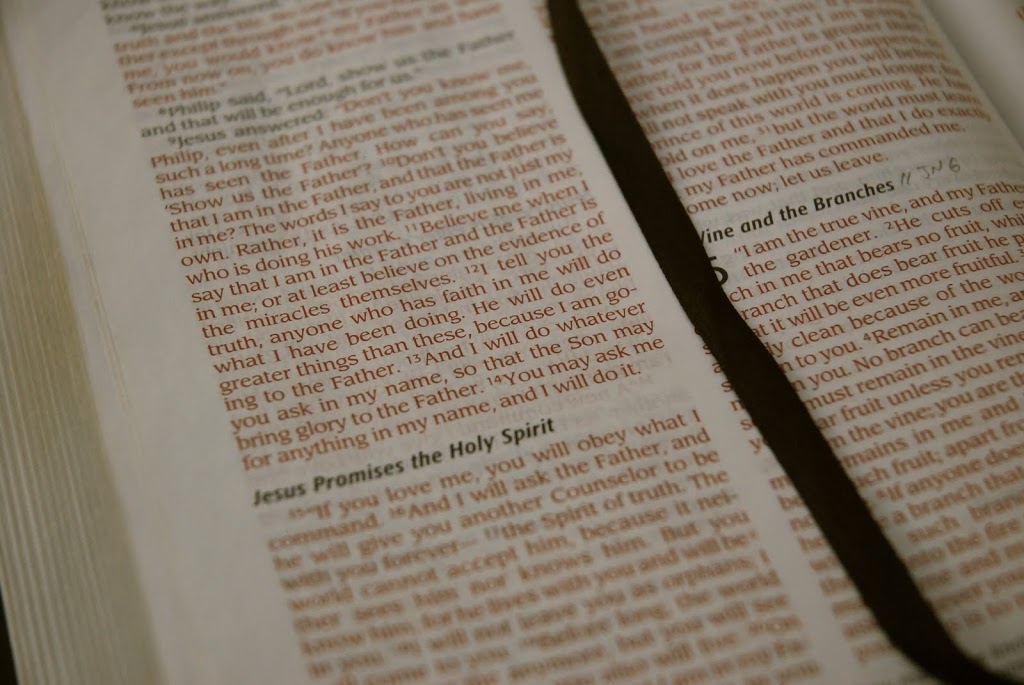 truth and the life. No one comes to the Father
except through me.
me, you would know
From now on, you do know him and have
seen him."
⁸Philip said, "Lord, show us the Father
and that will be enough for us."
⁹Jesus answered: "Don't you know me,
Philip, even after I have been among you
such a long time? Anyone who has seen me
has seen the Father. How can you say,
'Show us the Father'? ¹⁰Don't you believe
that I am in the Father, and that the Father is
in me? The words I say to you are not just my
own. Rather, it is the Father, living in me,
who is doing his work. ¹¹Believe me when I
say that I am in the Father and the Father is
in me; or at least believe on the evidence of
the miracles themselves. ¹²I tell you the
truth, anyone who has faith in me will do
what I have been doing. He will do even
greater things than these, because I am go-
ing to the Father. ¹³And I will do whatever
you ask in my name, so that the Son may
bring glory to the Father. ¹⁴You may ask me
for anything in my name, and I will do it.
Jesus Promises the Holy Spirit
¹⁵"If you love me, you will obey what I
command. ¹⁶And I will ask the Father, and
he will give you another Counselor to be
with you forever— ¹⁷the Spirit of truth. The
world cannot accept him, because it nei-
ther sees him nor knows him. But you
know him, for he lives with you and will be
in you. ¹⁸I will not leave you as orphans; I
will come to you. ¹⁹Before long, the world
will not see me anymore, but you will see
coming back to you.'
would be glad that I am
Father, for the Father is greater
told you now before it happens
when it does happen you will
not speak with you much longer,
ence of this world is coming. He has
old on me, ³¹but the world must learn
love the Father and that I do exactly
my Father has commanded me.
ome now; let us leave.
Vine and the Branches // JN 6
5 "I am the true vine, and my Father
the gardener. ²He cuts off
ch in me that bears no fruit, while
ranch that does bear fruit he p
at it will be even more fruitful.
ly clean because of the wo
to you. ⁴Remain in me, an
n you. No branch can bea
must remain in the vine
ar fruit unless you rem
the vine; you are the
mains in me and
ch fruit; apart from
⁶If anyone does
a branch that
such bran
to the fire